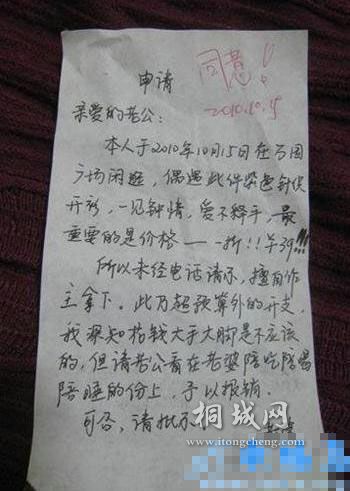 同意!
2010.10.15
申请
亲爱的老公:
本人于2010年10月15日在万国
广场闲逛,偶遇此件针织
开衫,一见钟情,爱不释手,最
重要的是价格——一折!!¥39!!!
所以未经电话请示,擅自作
主拿下。此乃超预算外的开支,
我深知花钱大手大脚是不应该
的,但请老公看在老婆陪吃陪喝
陪睡的份上,予以报销.
可否,请批示
桐城网
www.itongcheng.com